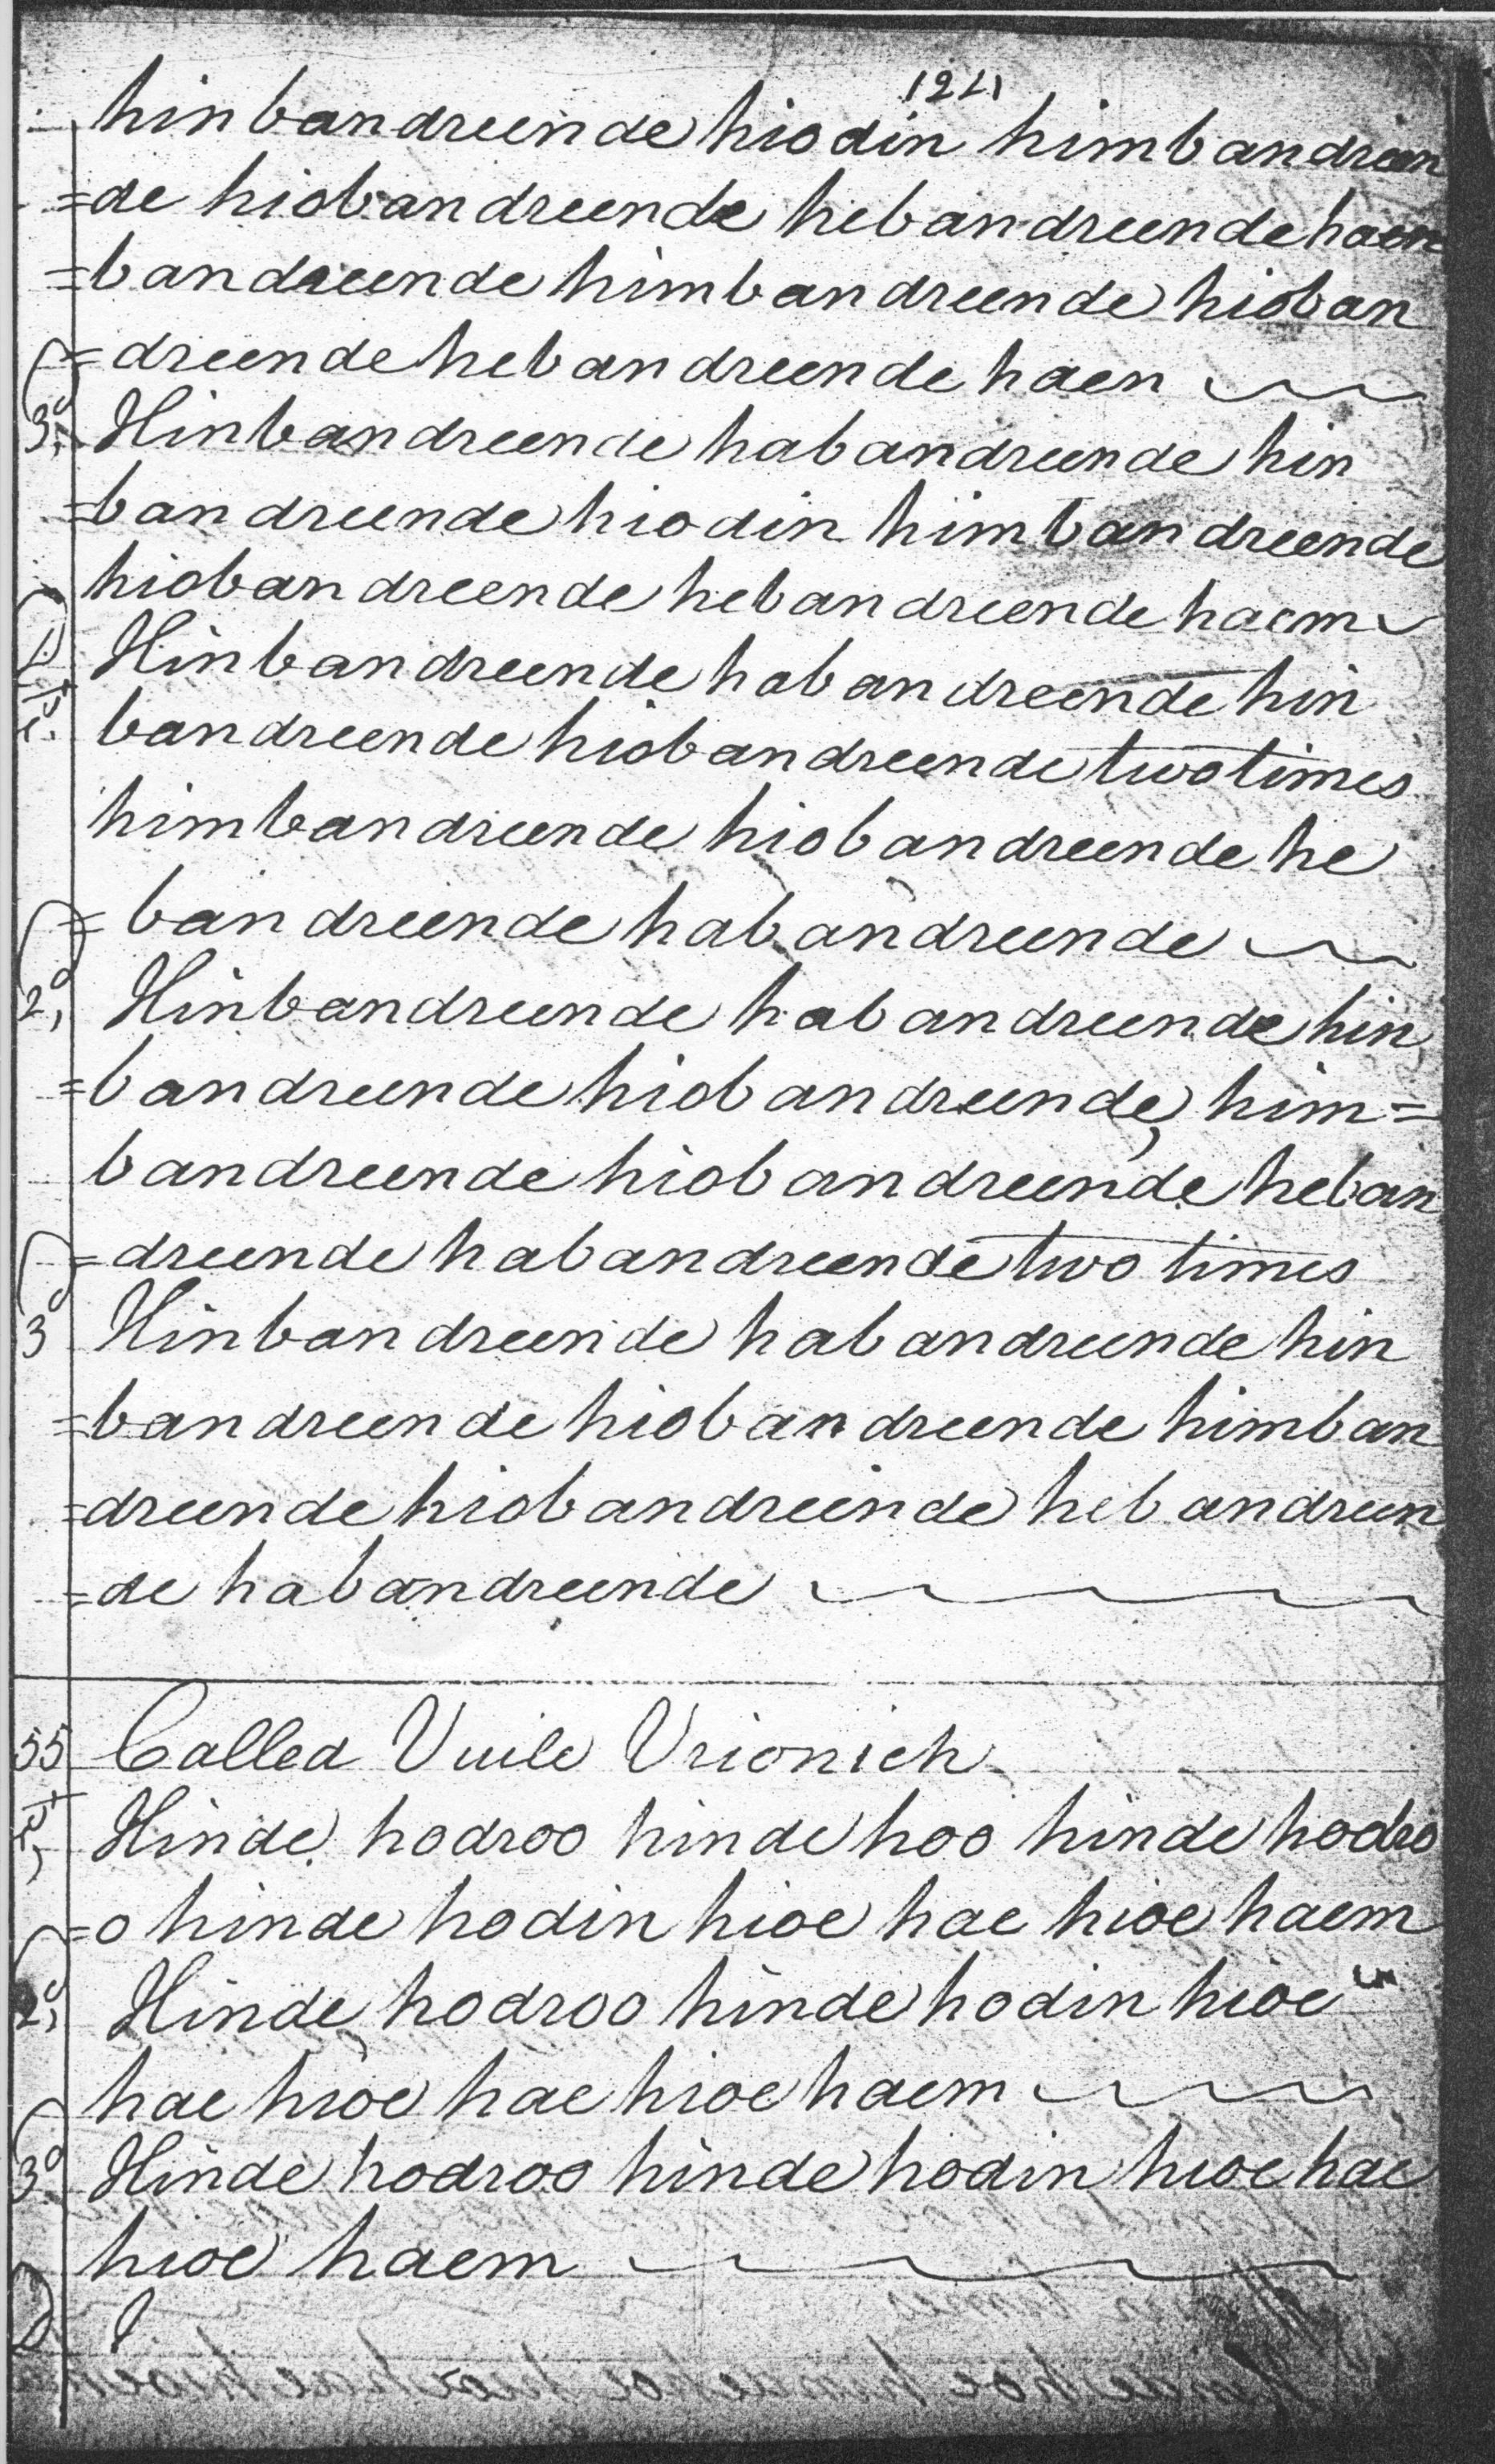 121
hinbandreende hiodin himbandreen
=de hiobandreende hebandreende haem
=bandreende himbandreende hioban
=dreende hebandreende haen
3d, Hinbandreende habandreende hin
=bandreende hiodin himbandreende
hiobandreende hebandreende haem
Hinbandreende habandreende hin
bandreende hiobandreende two times
himbandreende hiobandreende he
=bandreende habandreende
2d, Hinbandreende habandreende hin
=bandreende hiobandreende, him=
bandreende hiobandreende heban
=dreende habandreende two times
3d Hinbandreende habandreende hin
=bandreende hiobandreende himban
=dreende hiobandreende hebandreen
=de habandreende
55 Called Vuile Vrionich
Hinde hodroo hinde hoo hinde hodro
=o hinde hodin hioe hae hioe haem
2d, Hinde hodroo hinde hodin hioe
hae hioe hae hioe haem
3d Hinde hodroo hinde hodin hioe hae
hioe haem